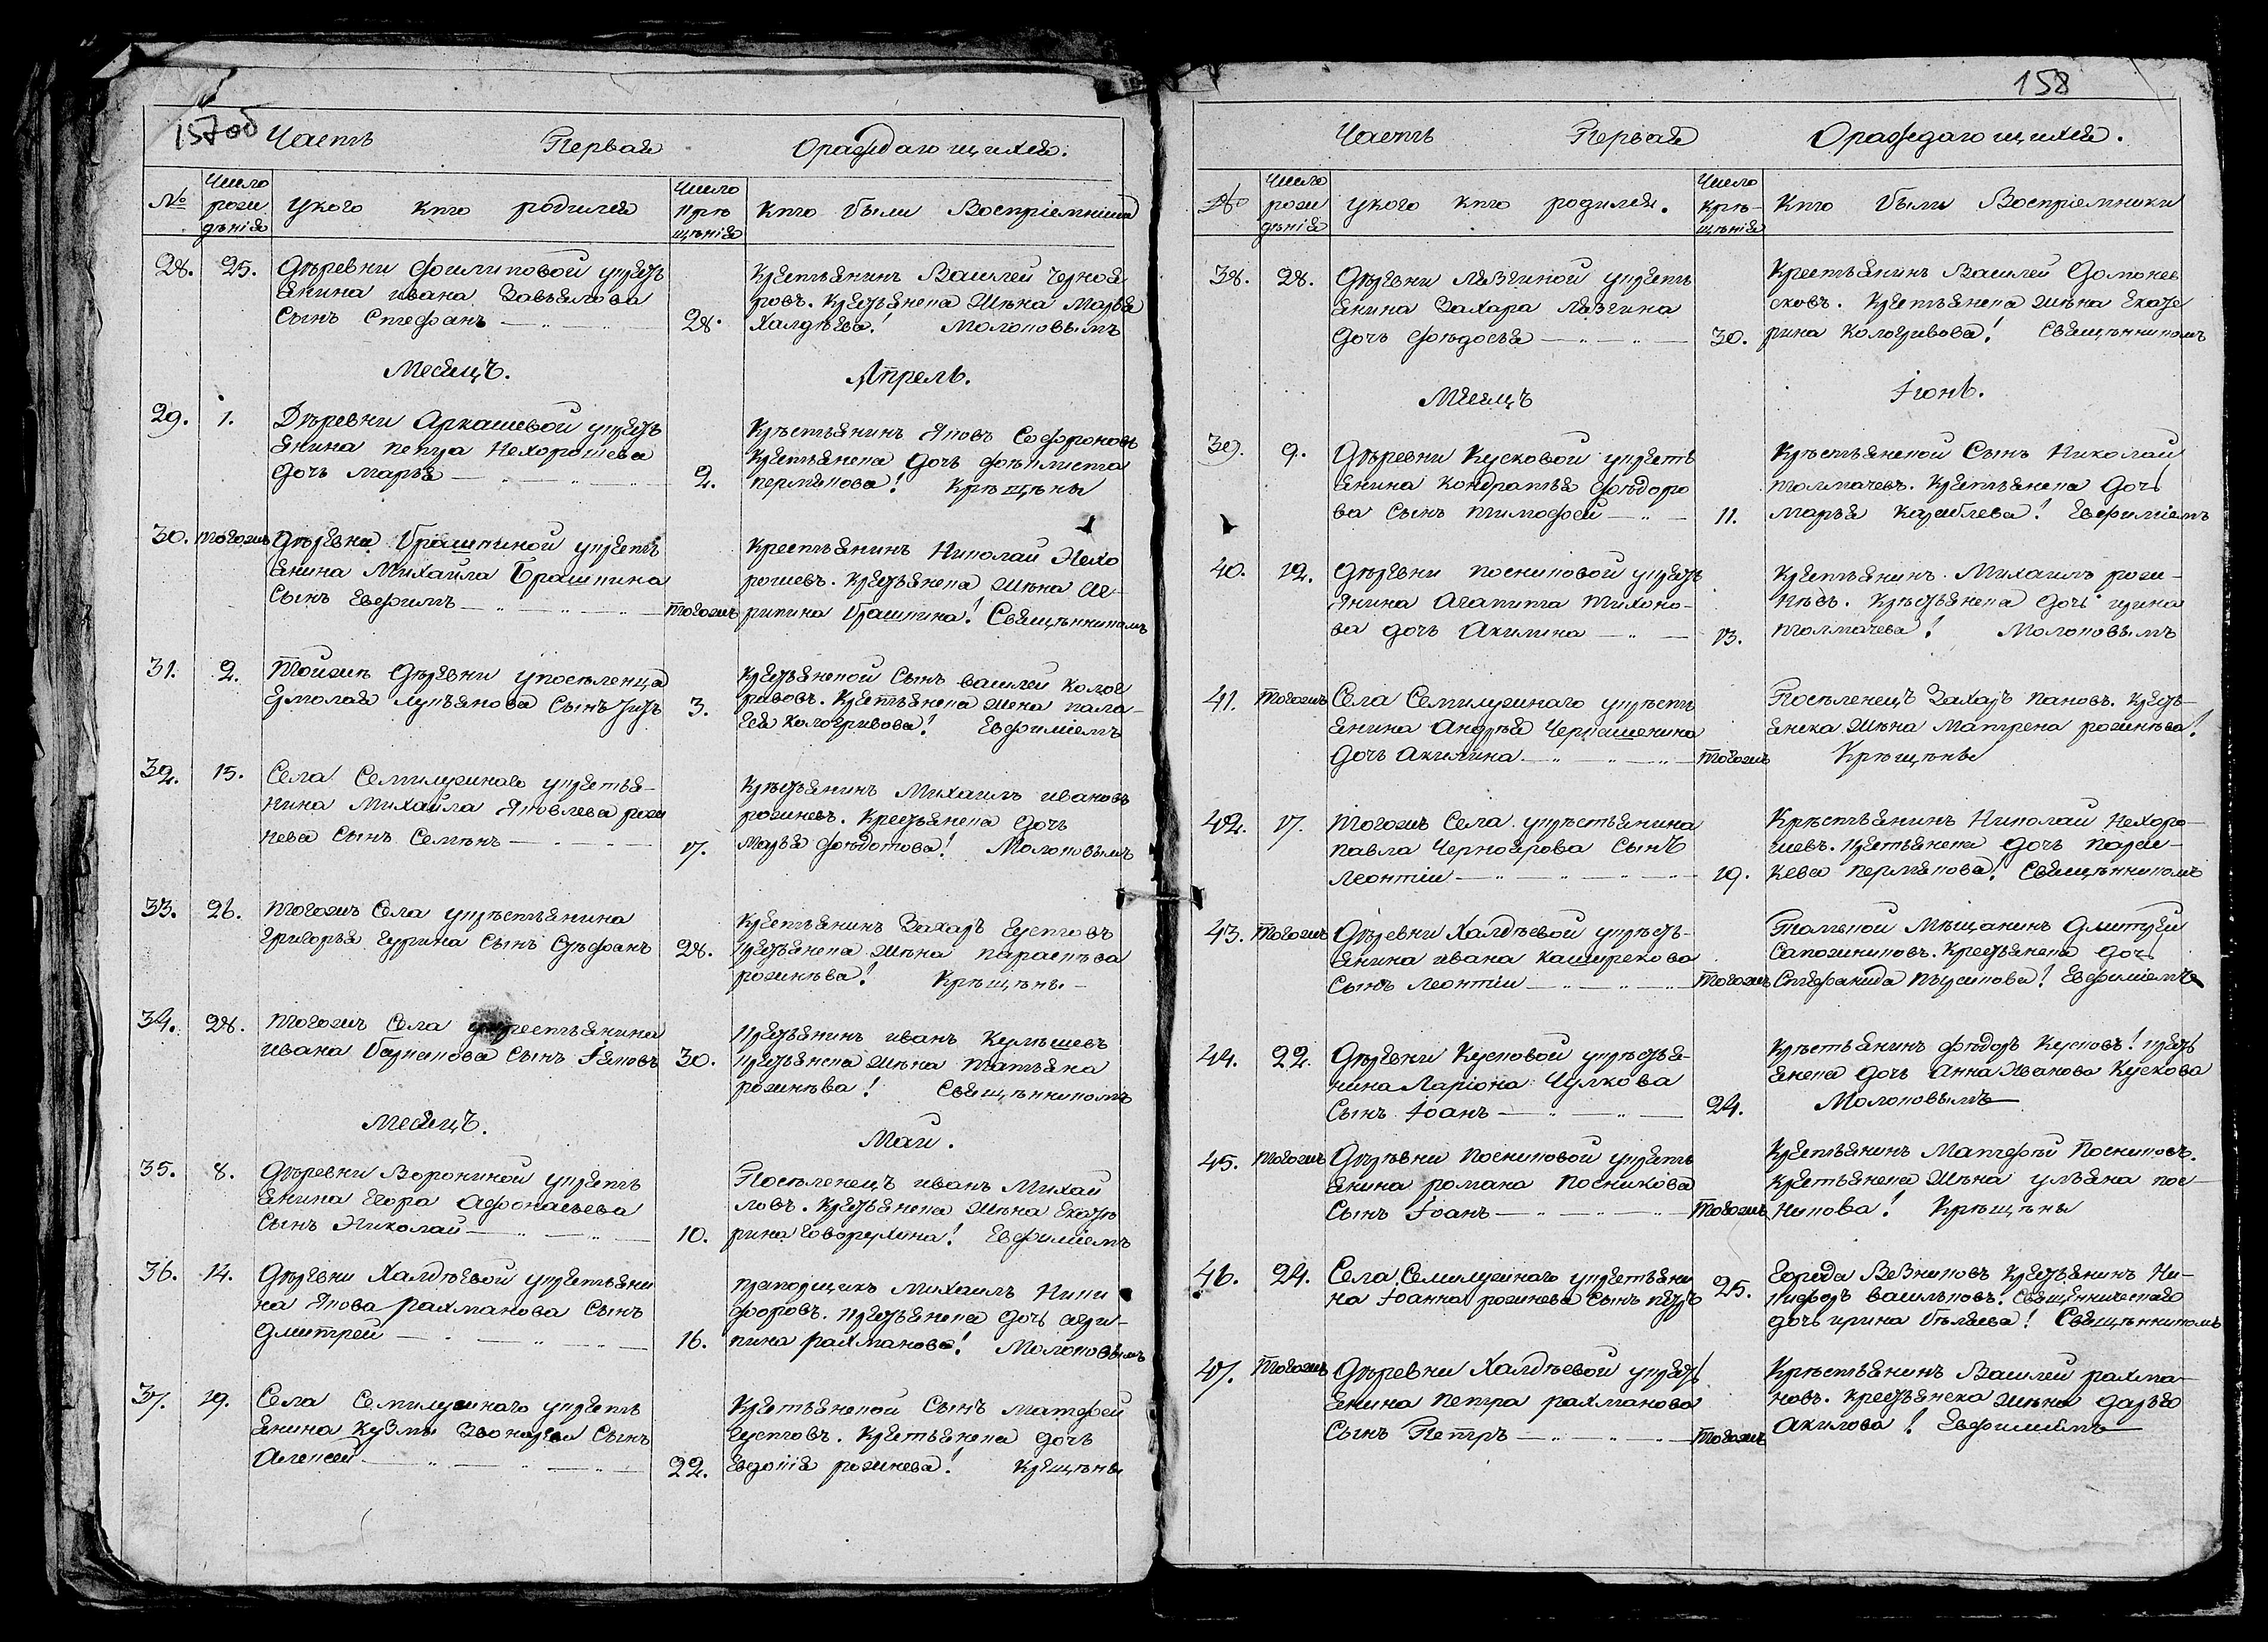 157об
Часть Первая Oраждающихся.
№
Число рожи дѣнія
укого кто родился
Число крѣ щѣнія
Кто были Воспріемники
28. 25. Дѣревни Филиповой укрестъ
янина ивана Завьялова
Сынъ Стефанъ
28.
Крестьянинъ Василей Черноя
ровъ. Крестьянска Жѣна Марья
Халдѣева! Молоковымъ
Месяцъ. Апрель.
29. 1. Дѣревни Аркашевой укресть
янина петра Нехорошева
дочь Марья
2.
Крѣстьянинъ Яковъ Софроновъ
Крестьянска Дочь Фѣклиста
пермякова! Крѣщѣны
30. тогожъ Дѣревни Брашкиной укресть
янина Михаила Брашкина
Сынъ Евфимъ
тогожъ
Крестьянинъ Николай Нехо
рошевъ. Крестьянска Жѣна Аг-
рипина Брашкина! Свящѣнникомъ
31. 2. Тойжъ Дѣревни упосѣленца
Ермолая лукьянова Сынъ
3.
Крестьянской Сынъ василей Колог
ривовъ. Крестьянска Жена пала-
гея Кологривова! Евфиміемъ
32. 15. Села Семилужнаго укрестья-
нина Михаила Яковлева рожи
нева Сынъ Семѣнъ
17.
Крѣстьянинъ Михаилъ ивановъ
рожневъ. Крестьянска дочь
Марья Фѣдотова! Молоковымъ
33. 26. тогожъ Села укрѣстьянина
григорья гурина Сынъ Стѣфанъ
28.
Крестьянинъ Захаръ Густовъ
Крестьянска Жѣна параскева
рожнѣва! Крѣщѣны
34. 28. тогожъ Села укрестьянина
ивана Барнакова Сынъ Іяковъ
30.
Крестьянинъ иванъ Кулышевъ
Крестьянска Жѣна Татьяна
рожинѣва! Свящѣнникомъ
Месяцъ. Маи.
35. 8. Дѣревни Ворониной укресть
янина Егора Афонасьева
Сынъ Николай
10.
Посѣленецъ иванъ Михаи
ловъ. Крестьянска Жѣна Екатѣ
рина говорухина! Евфиміемъ
36. 14. Дѣревни Халдѣевой укрестьяни
на Якова рахманова Сынъ
Дмитрей
16.
прапорщикъ Михаилъ Ники
форовъ. Крестьянска дочь агри-
пина рахманова! Молоковымъ
37. 19. Села Семилужнаго укресть
янина Кузмы Звонарева Сынъ
Алексей
22.
Крестьянской Сынъ матфей
Густовъ. Крестьянска дочь
Евдокія рожнева! Крещѣны
158
Часть Первая Oраждающихся.
№
Число рожи дѣнія
укого кто родился.
Число Крѣ- щѣнія
Кто были Воспріемники
38. 28. Дѣревни Лязгиной укресть
янина Захара Лязгина
дочь Фѣдосья
30.
Крестьянинъ Василей Домонев
сковъ. Крестьянска Жѣна Екате
рина Кологривова! Свящѣнникомъ
Мѣсяцъ Іюнь.
39. 9. Дѣревни Кусковой укресть
янина Кондратья Фѣдоро
ва Сынъ Тимофей
11.
Крѣстьянской Сынъ Николай
толмачевъ. Крестьянска дочь
марья Караблева! Евфиміемъ
40. 12. Дѣревни Посниковой укресть
Янина Агапита Тихоно-
ва дочь Акилина
13.
Крестьянинъ Михаилъ рожи-
нѣвъ. Крѣстьянска дочь ирина
толмачева! Молоковымъ
41. тогожъ Села Семилужнаго укрѣсть
янина Андрѣя Черкашенина
дочь Акилина
тогожъ
Посѣленецъ Захаръ пановъ. Кресть-
янска Жѣна Матрена рожинѣва!
Крѣщѣны
42. 17. Тогожъ Села укрѣстьянина
Павла Черноярова Сынъ
Леонтіи
19.
Крѣстьянинъ Николай Нехоро-
шевъ. Крестьянска дочь парас-
кева пермякова! Свящѣнникомъ
43. Тогожъ Дѣревни Халдѣевой укрѣсть-
янина ивана Каширскова
Сынъ Леонтіи
тогожъ
Томской Мѣщанинъ Дмитрей
Сапожниковъ. Крестьянска дочь
Стефанида! Евфиміемъ
44. 22. Дѣревни Кусковой укрѣстья-
нина Ларіона Чулкова
Сынъ Іоанъ
24.
Крѣстьянинъ Фѣдоръ Кусковъ! Кресть
янска дочь Анна Иванова Кускова
Молоковымъ
45. Тогожъ Дѣрѣвни Посниковой укресть
янина романа Посникова
Сынъ Іоанъ
тогожъ
Крестьянинъ Матфѣй Посниковъ.
Крестьянска Жѣна ульяна пос-
никова! Крѣщѣны
46. 24. Села Семилужнаго укрестьяни
на Іоанна рожинева Сынъ пѣтръ
25.
города Везниковъ Крестьянинъ Ни-
кифоръ васильковъ. Священническаго
дочь ирина бѣляева! Свящѣнникомъ
47. Тогожъ Дѣревни Халдѣевой укресть
янина Петра рахманова
Сынъ Петръ
тогожъ
Крѣстьянинъ Василей рахма-
новъ. Крестьянска Жѣна дарья
Акилова! Евфиміемъ